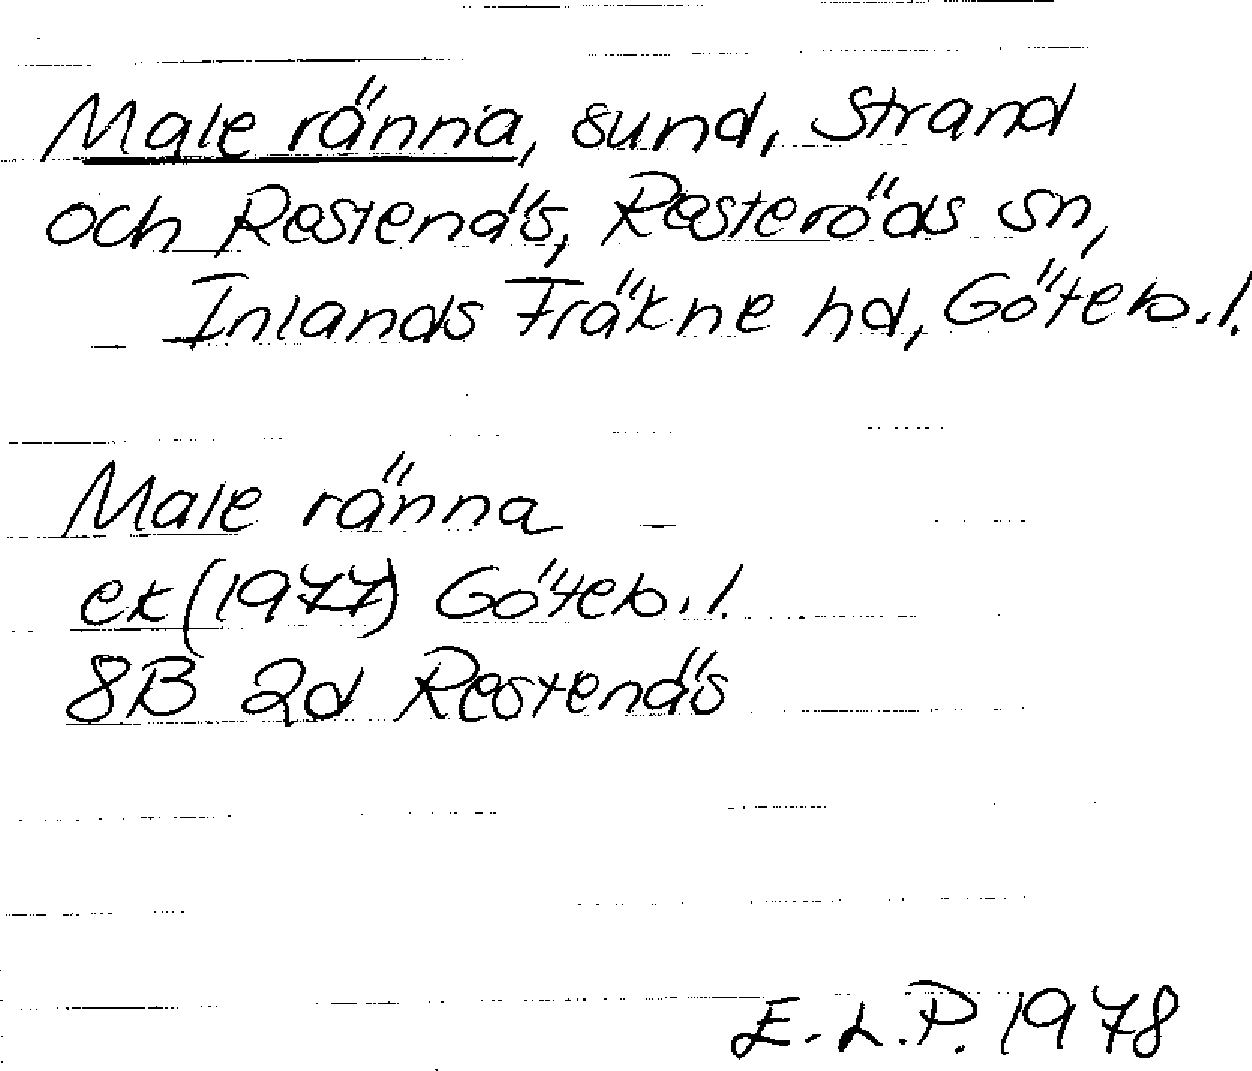 Male ränna, sund, Strand
och Restenäs, Resteröds sn,
Inlands Fräkne hd, Göteb.l.
Male ränna
ek (1977) Göteb.l.
8B 2d Restenäs
E.L.P. 1978